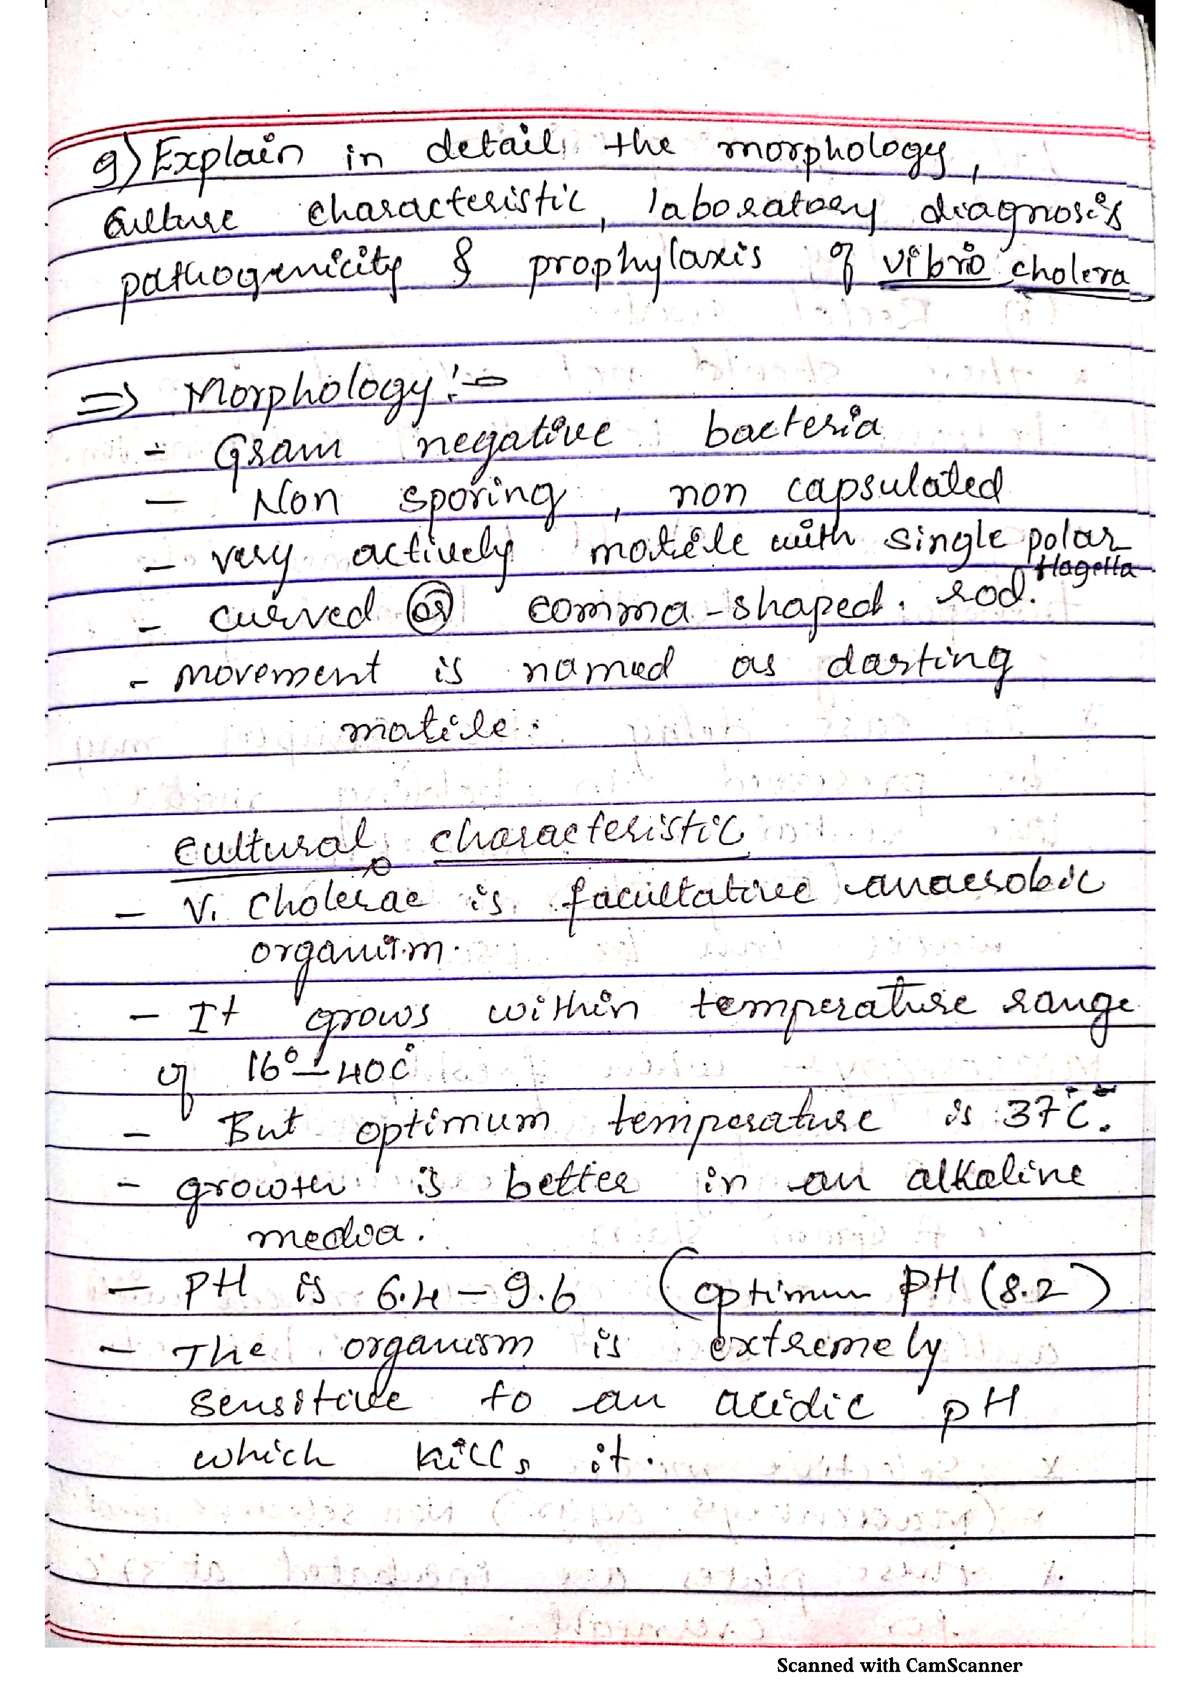 9) Explain in detail the morphology,
culture characteristic, laboratory diagnosis
pathogenicity & prophylaxis of vibrio cholera
=> Morphology :-
- Gram negative bacteria
- Non sporing, non capsulated
- very actively motile with single polar
flagella
- curved or comma-shaped. rod.
- movement is named as darting
motile.
Cultural characteristic
- V. Cholerae is facultative anaerobic
organism.
- It grows within temperature range
of 16° - 40°C
- But optimum temperature is 37°C.
- growth is better in an alkaline
media.
- PH is 6.4 - 9.6 (optimum PH (8.2)
- The organism is extremely
sensitive to an acidic pH
which kills it.
Scanned with CamScanner